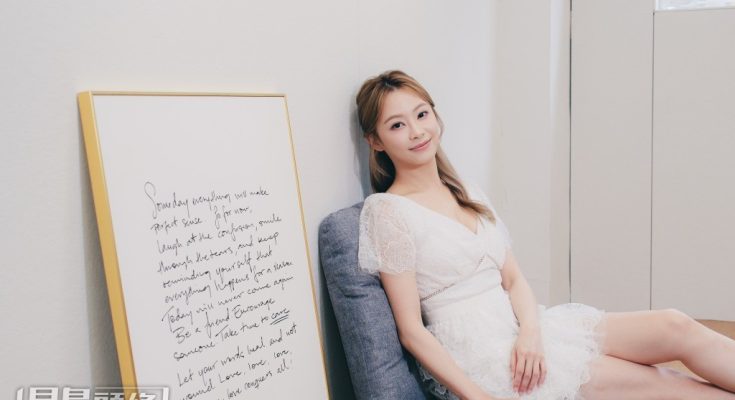 Someday everything will make
perfect sense. So for now,
laugh at the confusion, smile
through the tears, and keep
reminding yourself that
everything happens for a reason
Today will never come again
Be a friend Encourage
someone Take time to care
Let your words heal and not
wound Love, love, love,
love conquers all!